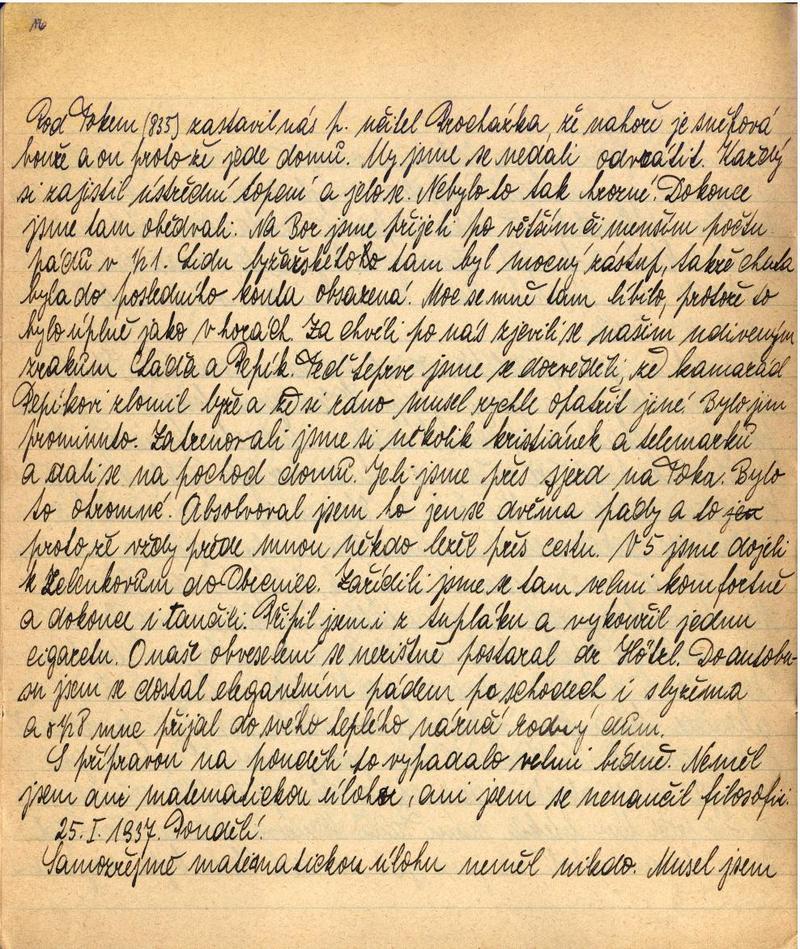 Pod Tokem (835) zastavil nás p. učitel Procházka, že nahoře je sněhová
bouře a on proto že jede domů. My jsme se nedali odvrátit. Každý
si zajistil ústřední topení a jelo se. Nebylo to tak hrozné. Dokonce
jsme tam obědvali. Na Bor jsme přijeli po větším či menším počtu
pádů v ½1. Lidu lyžařského tam byl mocný zástup, takže chata
byla do posledního kouta obsazená. Moc se mně tam líbilo, protože to
bylo úplně jako v horách. Za chvíli po nás zjevili se našim udiveným
zrakům Láďa a Pepík. Teď teprve jsme se dozvěděli, že kamarád
Pepíkovi zlomil lyže a že si ráno musel rychle opatřit jiné. Bylo jim
prominuto. Zatrenovali jsme si několik kristiánek a telemarků
a dali se na pochod domů. Jeli jsme přes sjezd na Toka. Bylo
to ohromné. Absolvoval jsem ho jen se dvěma pády a to jen
proto, že vždy přede mnou někdo ležel přes cestu. V 5 jsme dojeli
k Zelenkovům do Obecnice. Zařídili jsme se tam velmi komfortně
a dokonce i tančili. Připil jsem i z tupláku a vykouřil jednu
cigaretu. O naše obveselení se nezištně postaral dr Hötzl. Do autobu-
su jsem se dostal elegantním pádem po schodech i s lyžema
a o ½8 mne přijal do svého teplého náručí rodný dům.
S přípravou na pondělí to vypadalo velmi bídně. Neměl
jsem ani matematickou úlohu, ani jsem se nenaučil filosofii.
25. I. 1937. Pondělí.
Samozřejmě matematickou úlohu neměl nikdo. Musel jsem